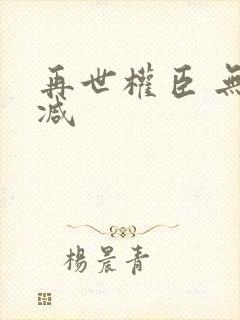 再世權臣 無
减
楊晨青